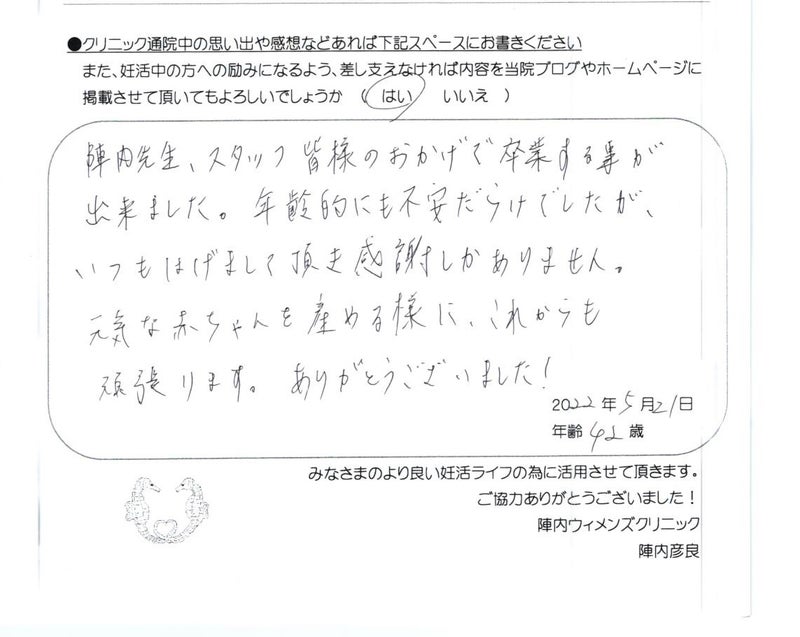 ●クリニック通院中の思い出や感想などあれば下記スペースにお書きください
また、妊活中の方への励みになるよう、差し支えなければ内容を当院ブログやホームページに
掲載させて頂いてもよろしいでしょうか （ はい　いいえ ）
陣内先生、スタッフ皆様のおかげで卒業する事が
出来ました。年齢的にも不安だらけでしたが、
いつもはげまして頂き感謝しかありません。
元気な赤ちゃんを産める様に、これからも
頑張ります。ありがとうございました!
2022年5月21日
年齢 42 歳
みなさまのより良い妊活ライフの為に活用させて頂きます。
ご協力ありがとうございました！
陣内ウィメンズクリニック
陣内彦良